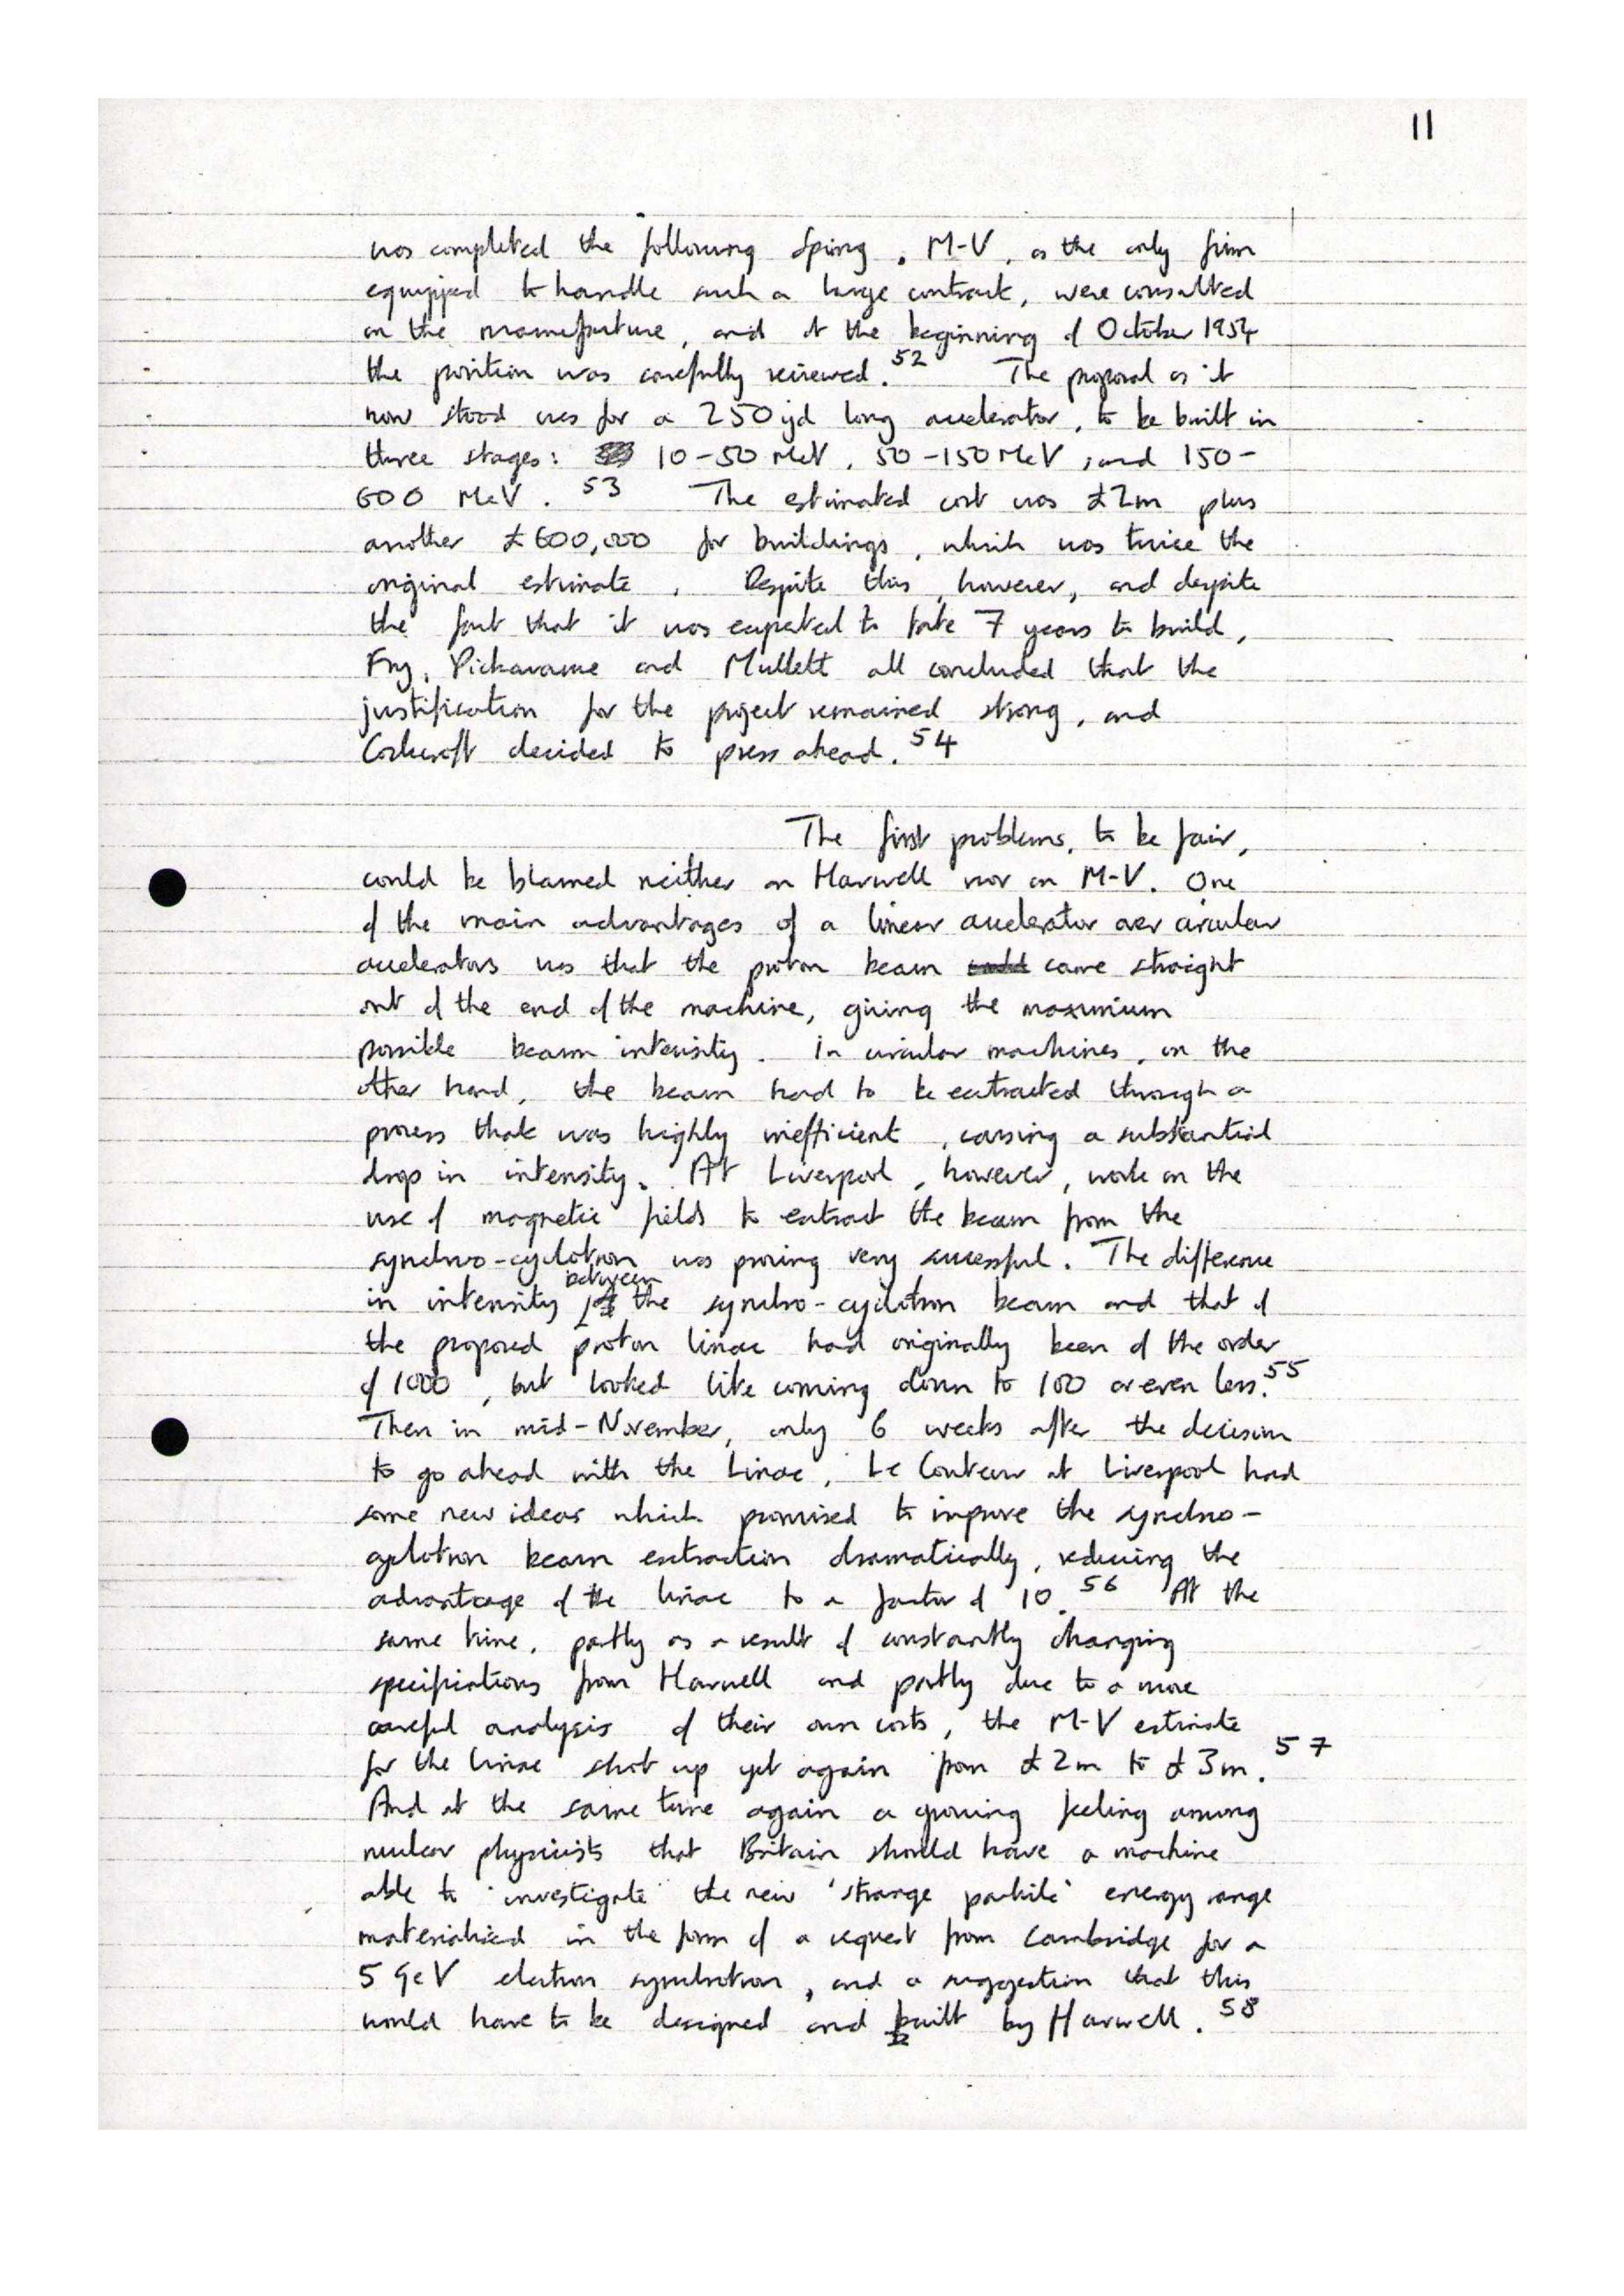 11
was completed the following Spring. M-V, as the only firm
equipped to handle such a large contract, were consulted
on the manufacture, and at the beginning of October 1954
the position was carefully reviewed.52 The proposal as it
now stood was for a 250 yd long accelerator, to be built in
three stages: 10-50 MeV, 50-150 MeV, and 150-
600 MeV.53 The estimated cost was £2m plus
another £600,000 for buildings, which was twice the
original estimate. Despite this, however, and despite
the fact that it was expected to take 7 years to build,
Fry, Pickavance and Mullett all concluded that the
justification for the project remained strong, and
Cockcroft decided to press ahead.54
The first problems, to be fair,
could be blamed neither on Harwell nor on M-V. One
of the main advantages of a linear accelerator over circular
accelerators was that the proton beam came straight
out of the end of the machine, giving the maximum
possible beam intensity. In circular machines, on the
other hand, the beam had to be extracted through a
process that was highly inefficient, causing a substantial
drop in intensity. At Liverpool, however, work on the
use of magnetic fields to extract the beam from the
synchro-cyclotron was proving very successful. The difference
in intensity between the synchro-cyclotron beam and that of
the proposed proton linac had originally been of the order
of 1000, but looked like coming down to 100 or even less.55
Then in mid-November, only 6 weeks after the decision
to go ahead with the Linac, Le Couteur at Liverpool had
some new ideas which promised to improve the synchro-
cyclotron beam extraction dramatically, reducing the
advantage of the linac to a factor of 10.56 At the
same time, partly as a result of constantly changing
specifications from Harwell and partly due to a more
careful analysis of their own costs, the M-V estimate
for the linac shot up yet again from £2m to £3m.57
And at the same time again a growing feeling among
nuclear physicists that Britain should have a machine
able to investigate the new 'strange particle' energy range
materialised in the form of a request from Cambridge for a
5 GeV electron synchrotron, and a suggestion that this
would have to be designed and built by Harwell.58